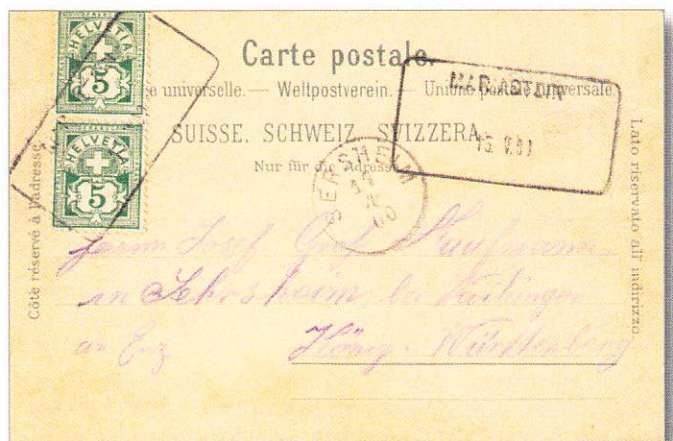 HELVETIA
5
HELVETIA
5
Carte postale.
universelle. — Weltpostverein. — Unione postale universale.
SUISSE. SCHWEIZ. SVIZZERA.
Nur für die Adresse.
Côté réservé à l'adresse.
Lato riservato all' indirizzo.
MARIASTEIN
SERSHEIM
Herrn Josef Graf
in Sersheim bei
an Enz
König. Württemberg